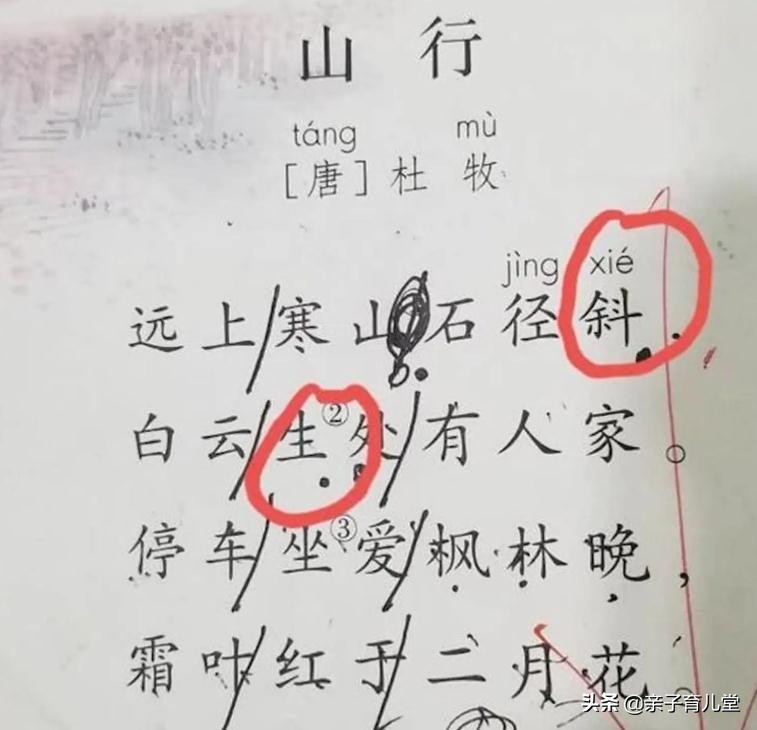 山 行
táng mù
[唐] 杜 牧
jìng xié
远上寒山石径斜，
白云生②处有人家。
停车坐③爱枫林晚，
霜叶红于二月花。
头条 @亲子育儿堂